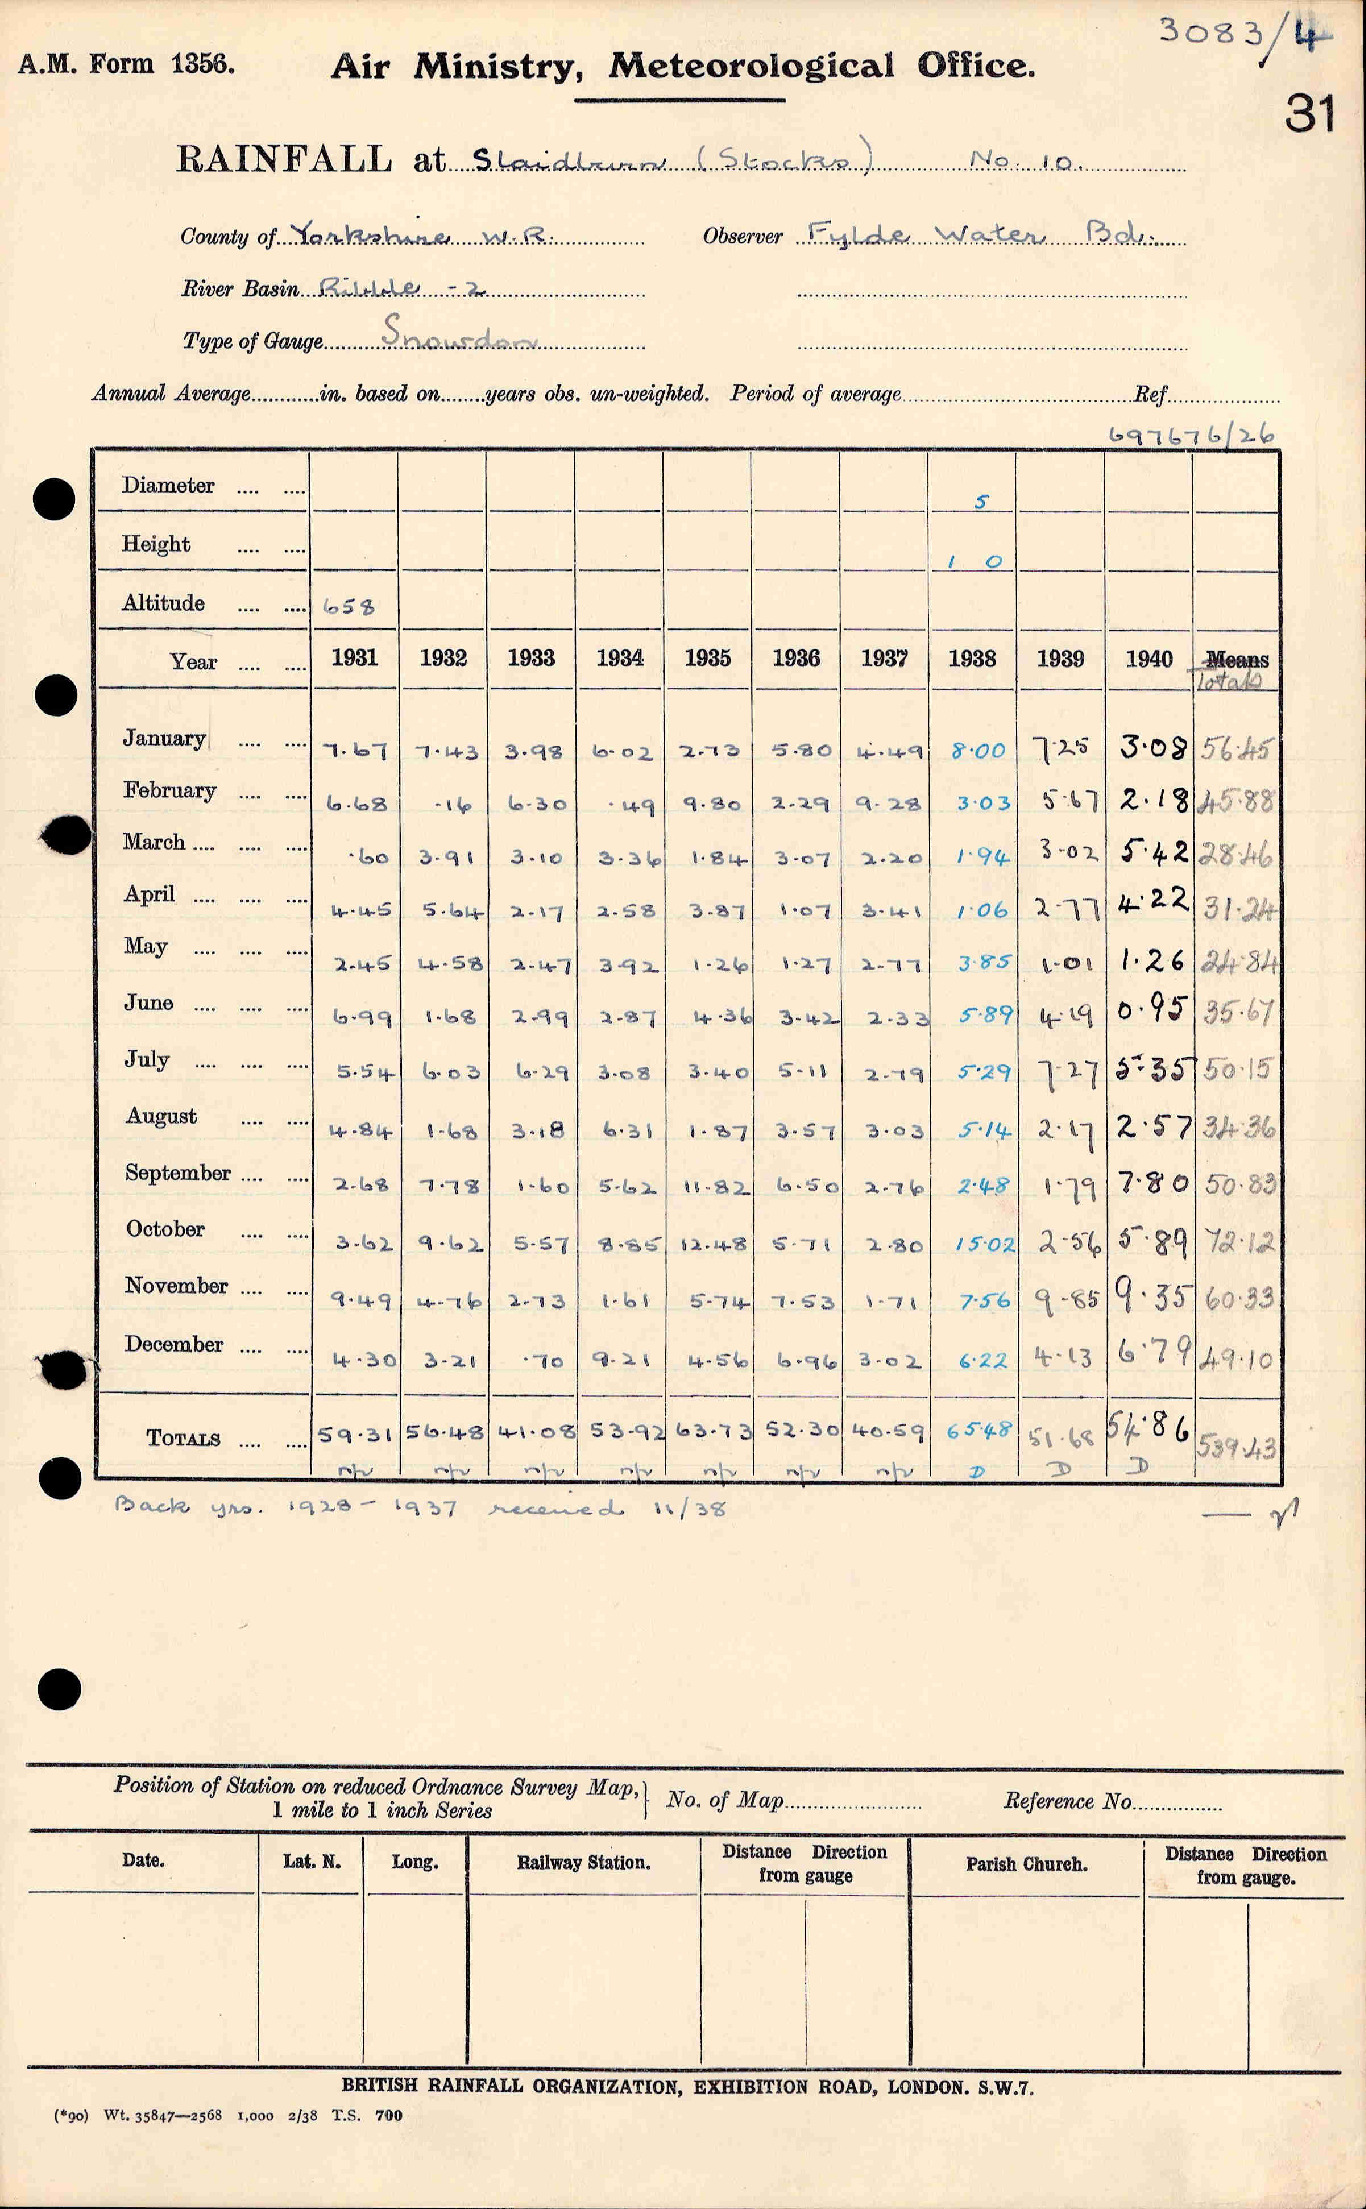 3083/4
A.M. Form 1356. Air Ministry, Meteorological Office.
31
RAINFALL at Slaidburn (Stocks) No. 10.
County of Yorkshire W.R. Observer Fylde Water Bd.
River Basin Ribble -2
Type of Gauge Snowdon
Annual Average............in. based on........years obs. un-weighted. Period of average........ Ref........
697676/26
Diameter .... .... 5
Height .... .... 1 0
Altitude .... .... 658
Year .... .... 1931 1932 1933 1934 1935 1936 1937 1938 1939 1940 Means
Totals
January .... .... 7.67 7.43 3.98 6.02 2.73 5.80 4.49 8.00 7.25 3.08 56.45
February .... .... 6.68 .16 6.30 .49 9.80 2.29 9.28 3.03 5.67 2.18 45.88
March .... .... .... .60 3.91 3.10 3.36 1.84 3.07 2.20 1.94 3.02 5.42 28.46
April .... .... .... 4.45 5.64 2.17 2.58 3.87 1.07 3.41 1.06 2.77 4.22 31.24
May .... .... .... 2.45 4.58 2.47 3.92 1.26 1.27 2.77 3.85 1.01 1.26 24.84
June .... .... .... 6.99 1.68 2.99 2.87 4.36 3.42 2.33 5.89 4.19 0.95 35.67
July .... .... .... 5.54 6.03 6.29 3.08 3.40 5.11 2.79 5.29 7.27 5.35 50.15
August .... .... 4.84 1.68 3.18 6.31 1.87 3.57 3.03 5.14 2.17 2.57 34.36
September .... .... 2.68 7.78 1.60 5.62 11.82 6.50 2.76 2.48 1.79 7.80 50.83
October .... .... 3.62 9.62 5.57 8.85 12.48 5.71 2.80 15.02 2.56 5.89 72.12
November .... .... 9.49 4.76 2.73 1.61 5.74 7.53 1.71 7.56 9.85 9.35 60.33
December .... .... 4.30 3.21 .70 9.21 4.56 6.96 3.02 6.22 4.13 6.79 49.10
TOTALS .... .... 59.31 56.48 41.08 53.92 63.73 52.30 40.59 65.48 51.68 54.86 539.43
D D D
Back yrs. 1928 - 1937 received 11/38
Position of Station on reduced Ordnance Survey Map,
1 mile to 1 inch Series
No. of Map........ Reference No........
Date. Lat. N. Long. Railway Station. Distance Direction from gauge Parish Church. Distance Direction from gauge.
BRITISH RAINFALL ORGANIZATION, EXHIBITION ROAD, LONDON. S.W.7.
(*90) Wt. 35847—2568 1,000 2/38 T.S. 700